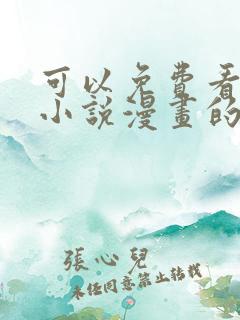 可以免費看
小說漫畫的
張心兒
未經同意禁止轉載